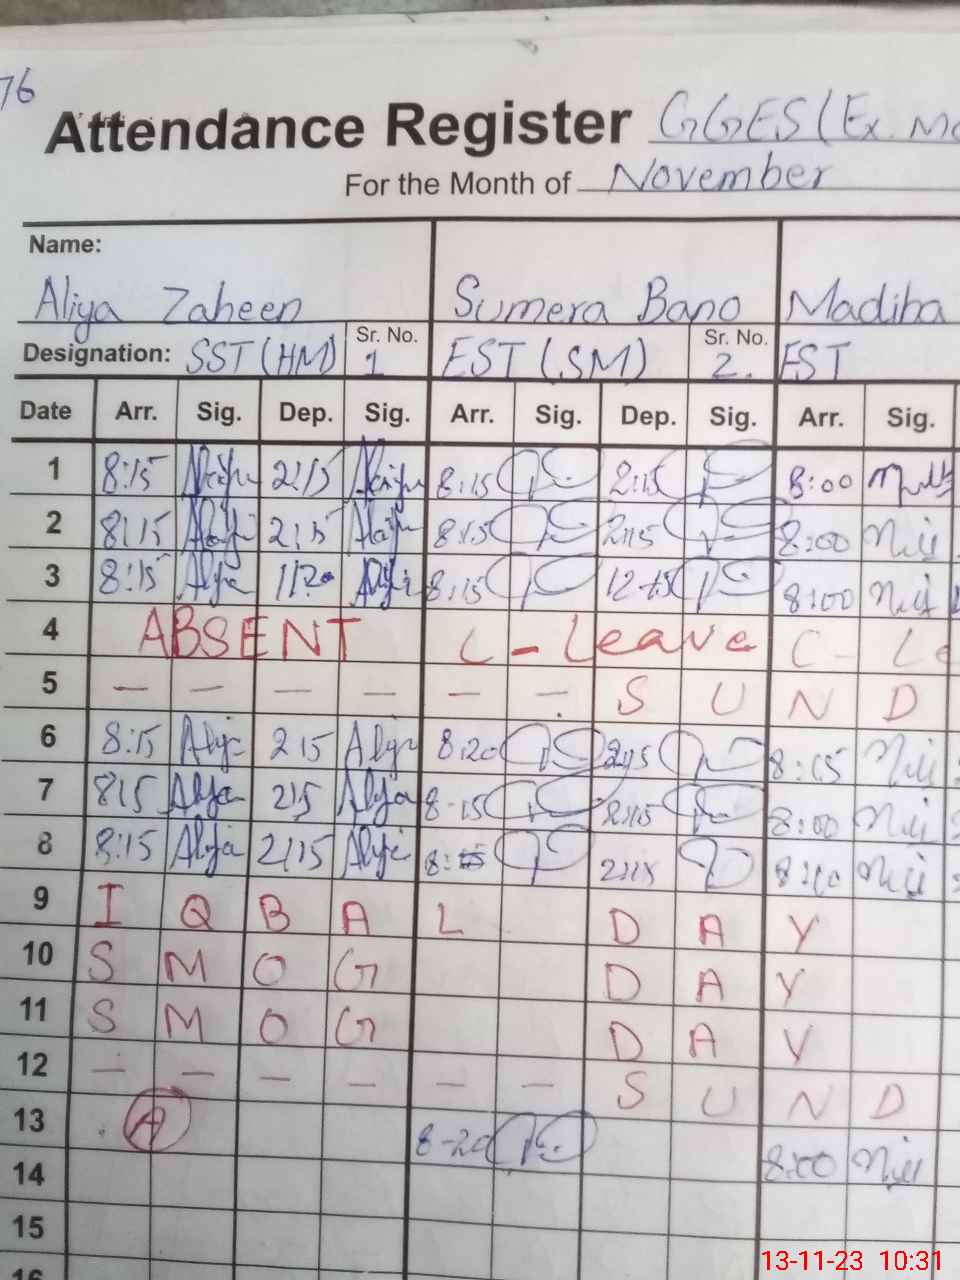 76
Attendance Register GGES (Ex. Mo
For the Month of November
Name:
Aliya Zaheen Sumera Bano Madiha
Designation: SST (HM) Sr. No. 1 EST (SM) Sr. No. 2. EST
Date Arr. Sig. Dep. Sig. Arr. Sig. Dep. Sig. Arr. Sig.
1 8:15 2:15 8:15 2:15 8:00
2 8:15 2:15 8:15 2:15 8:00
3 8:15 Aliya 8:15 8:00
4 ABSENT L - Leave C - Le
5 — — — — — — S U N D
6 8:15 Aliya 2 15 Aliya 8:20 2:15 8:15
7 815 Aliya 215 Aliya 8-15 2:15 8:00
8 8:15 Aliya 2:15 Aliya 2:15
9 I Q B A L D A Y
10 S M O G D A Y
11 S M O G D A Y
12 — — — — — — S U N D
13 A 8-20 8:00
14
15
16
13-11-23 10:31